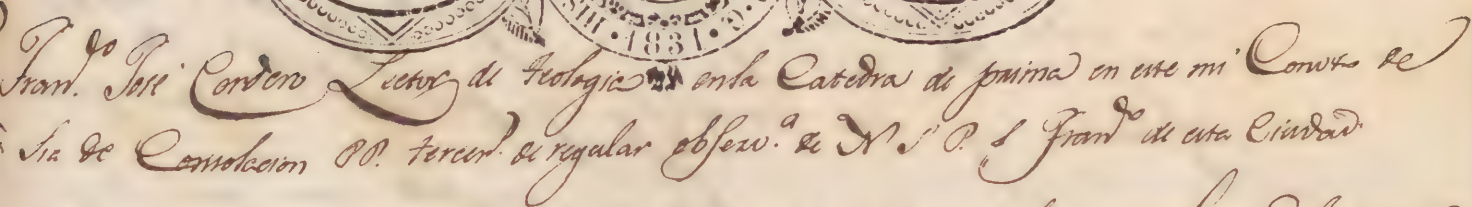 HIS 1831
Fran.do José Cordero Lector de teologia en la Catedra de prima en este mi Convto de
Sra de Consolacion PP. tercer.s de regular observ.a de N S P. S Fran.do de esta Ciudad